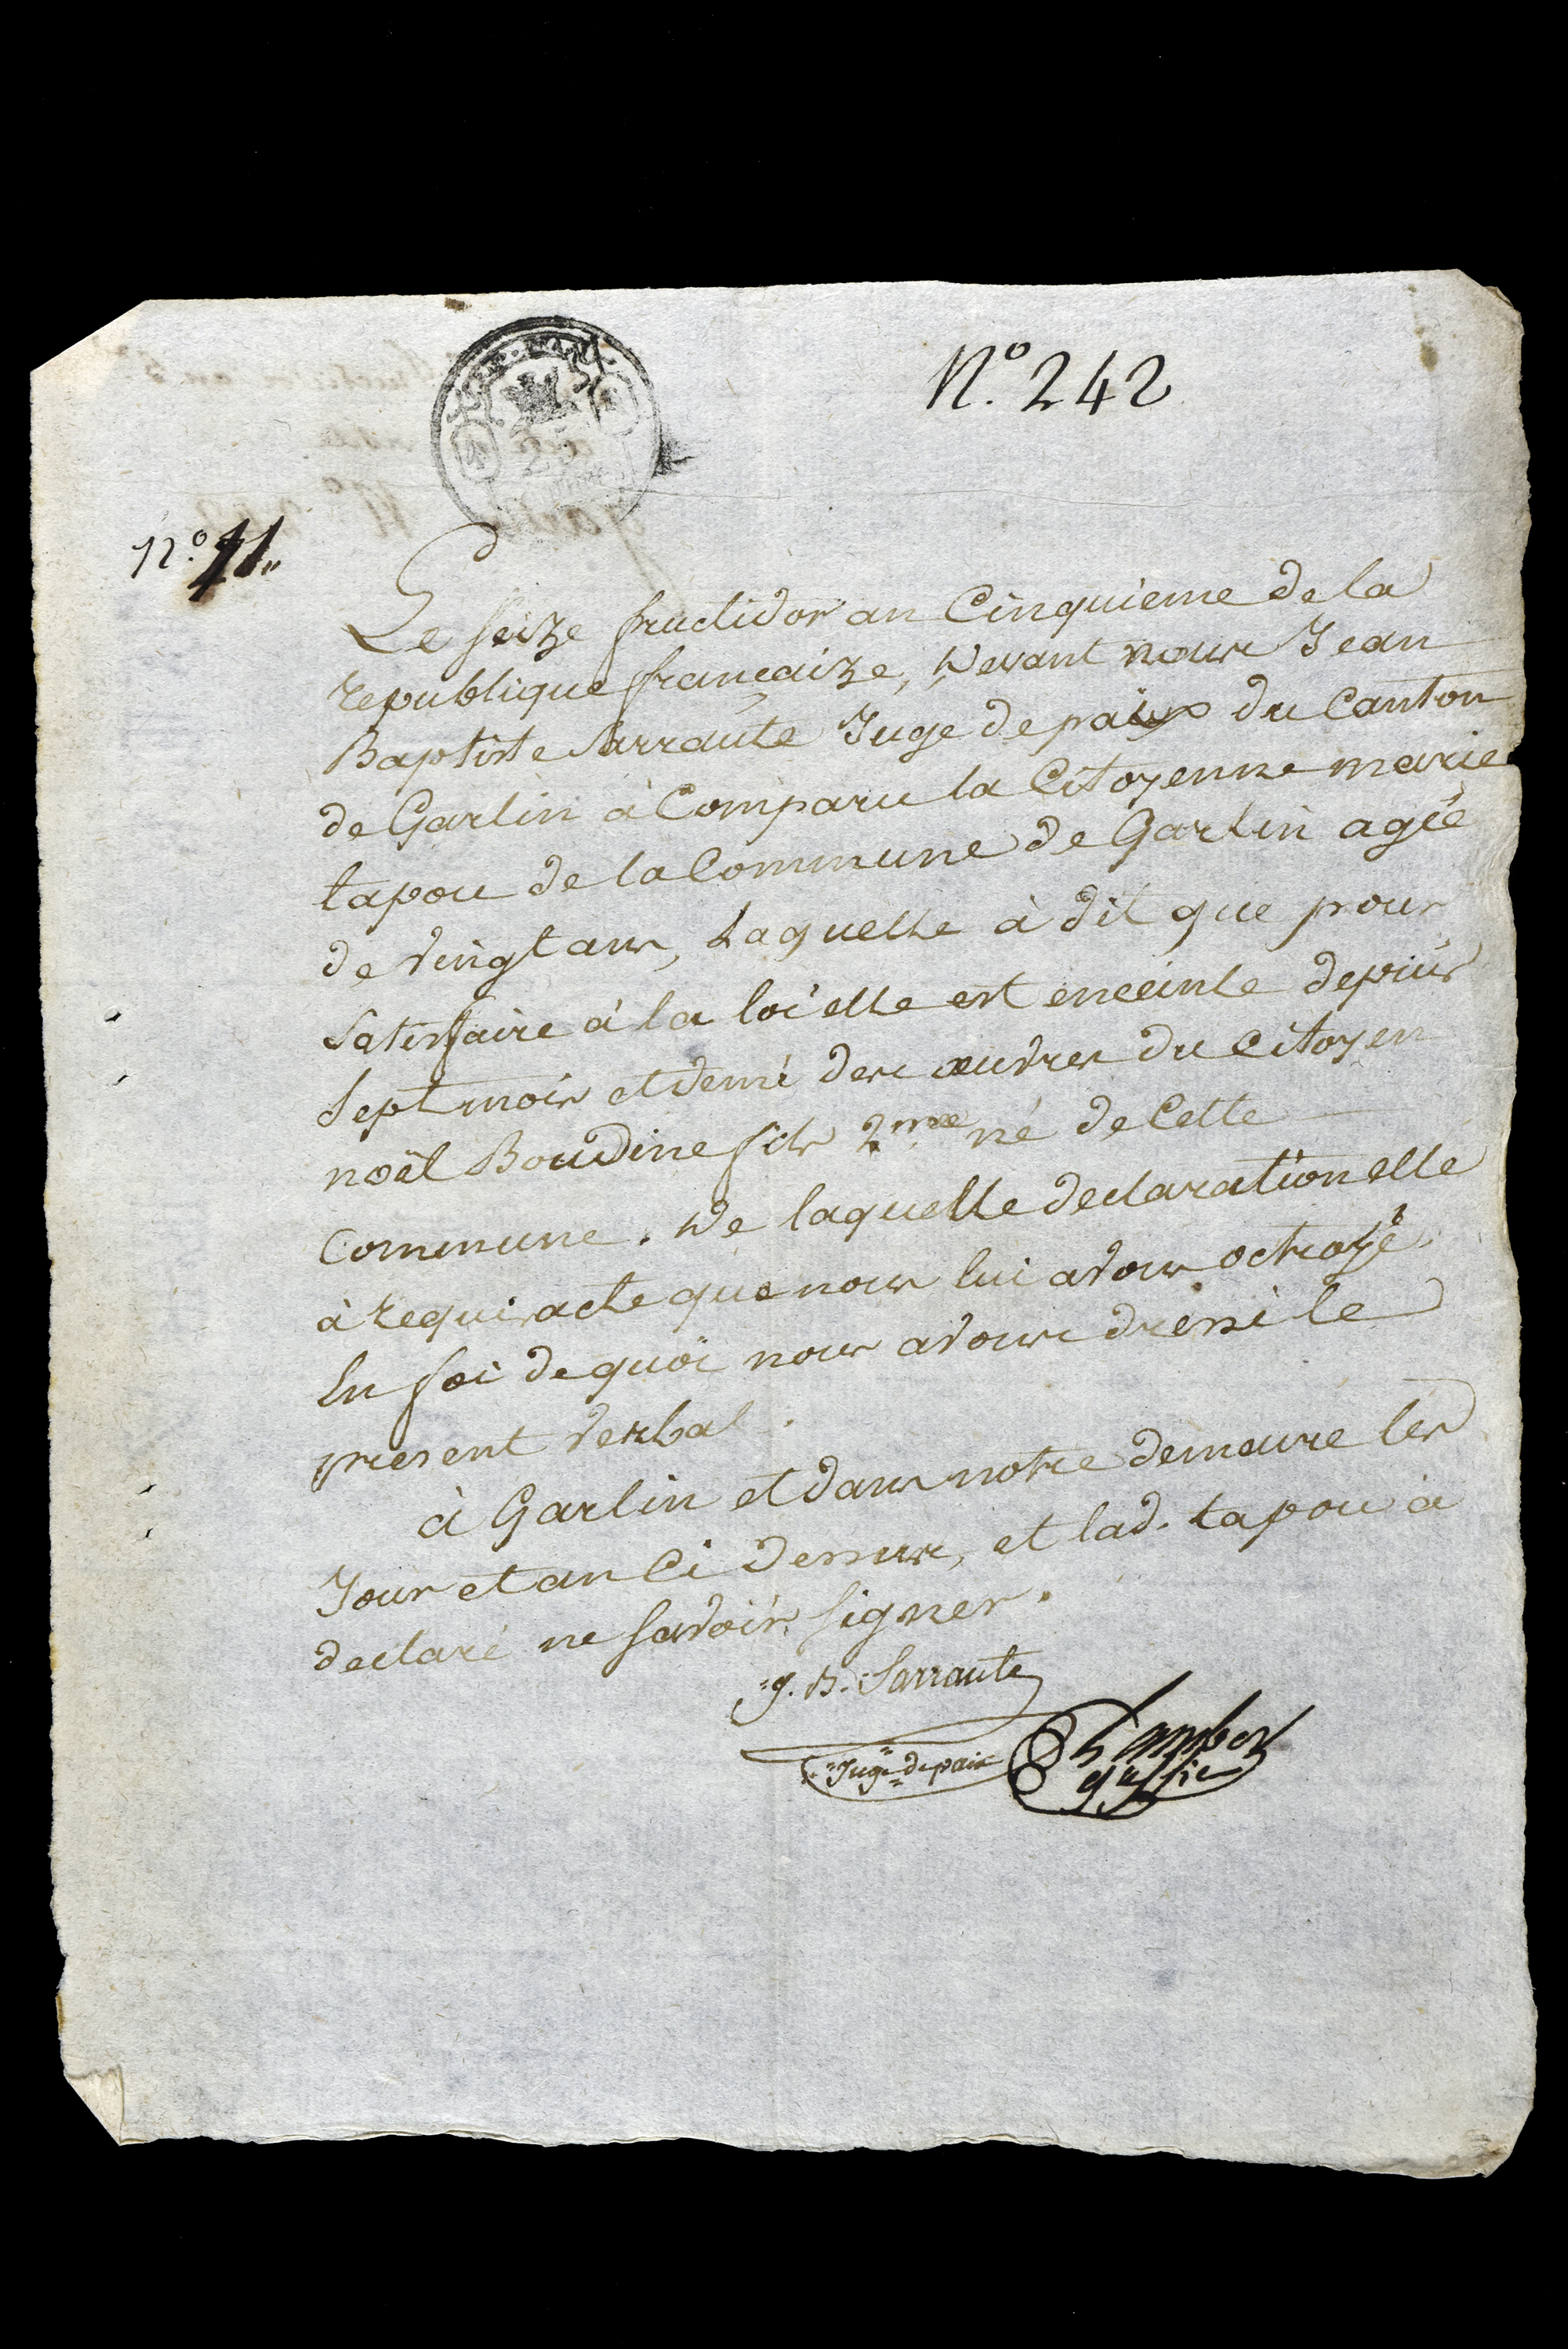 N.° 242
N.° 11.
Le seize fructidor an Cinquieme de la
republique françaize, Devant nous Jean
Baptiste Sarraute Juge de paix du Canton
de Garlin à Comparu la Citoyenne marie
tapou de la Commune de Garlin agée
de vingt ans, Laquelle à dit que pour
Satisfaire à la loi elle est enceinte depuis
Sept mois et demi des œuvres du Citoyen
noël Boudine fils 2.me né de Cette
Commune. De laquelle declaration elle
à requis acte que nous lui avons octroyé.
En foi de quoi nous avons dressé le
present verbal.
à Garlin et dans notre demeure les
Jour et an Ci dessus, et lad. tapou à
declaré ne savoir signer.
J. B. Sarraute
Juge de paix